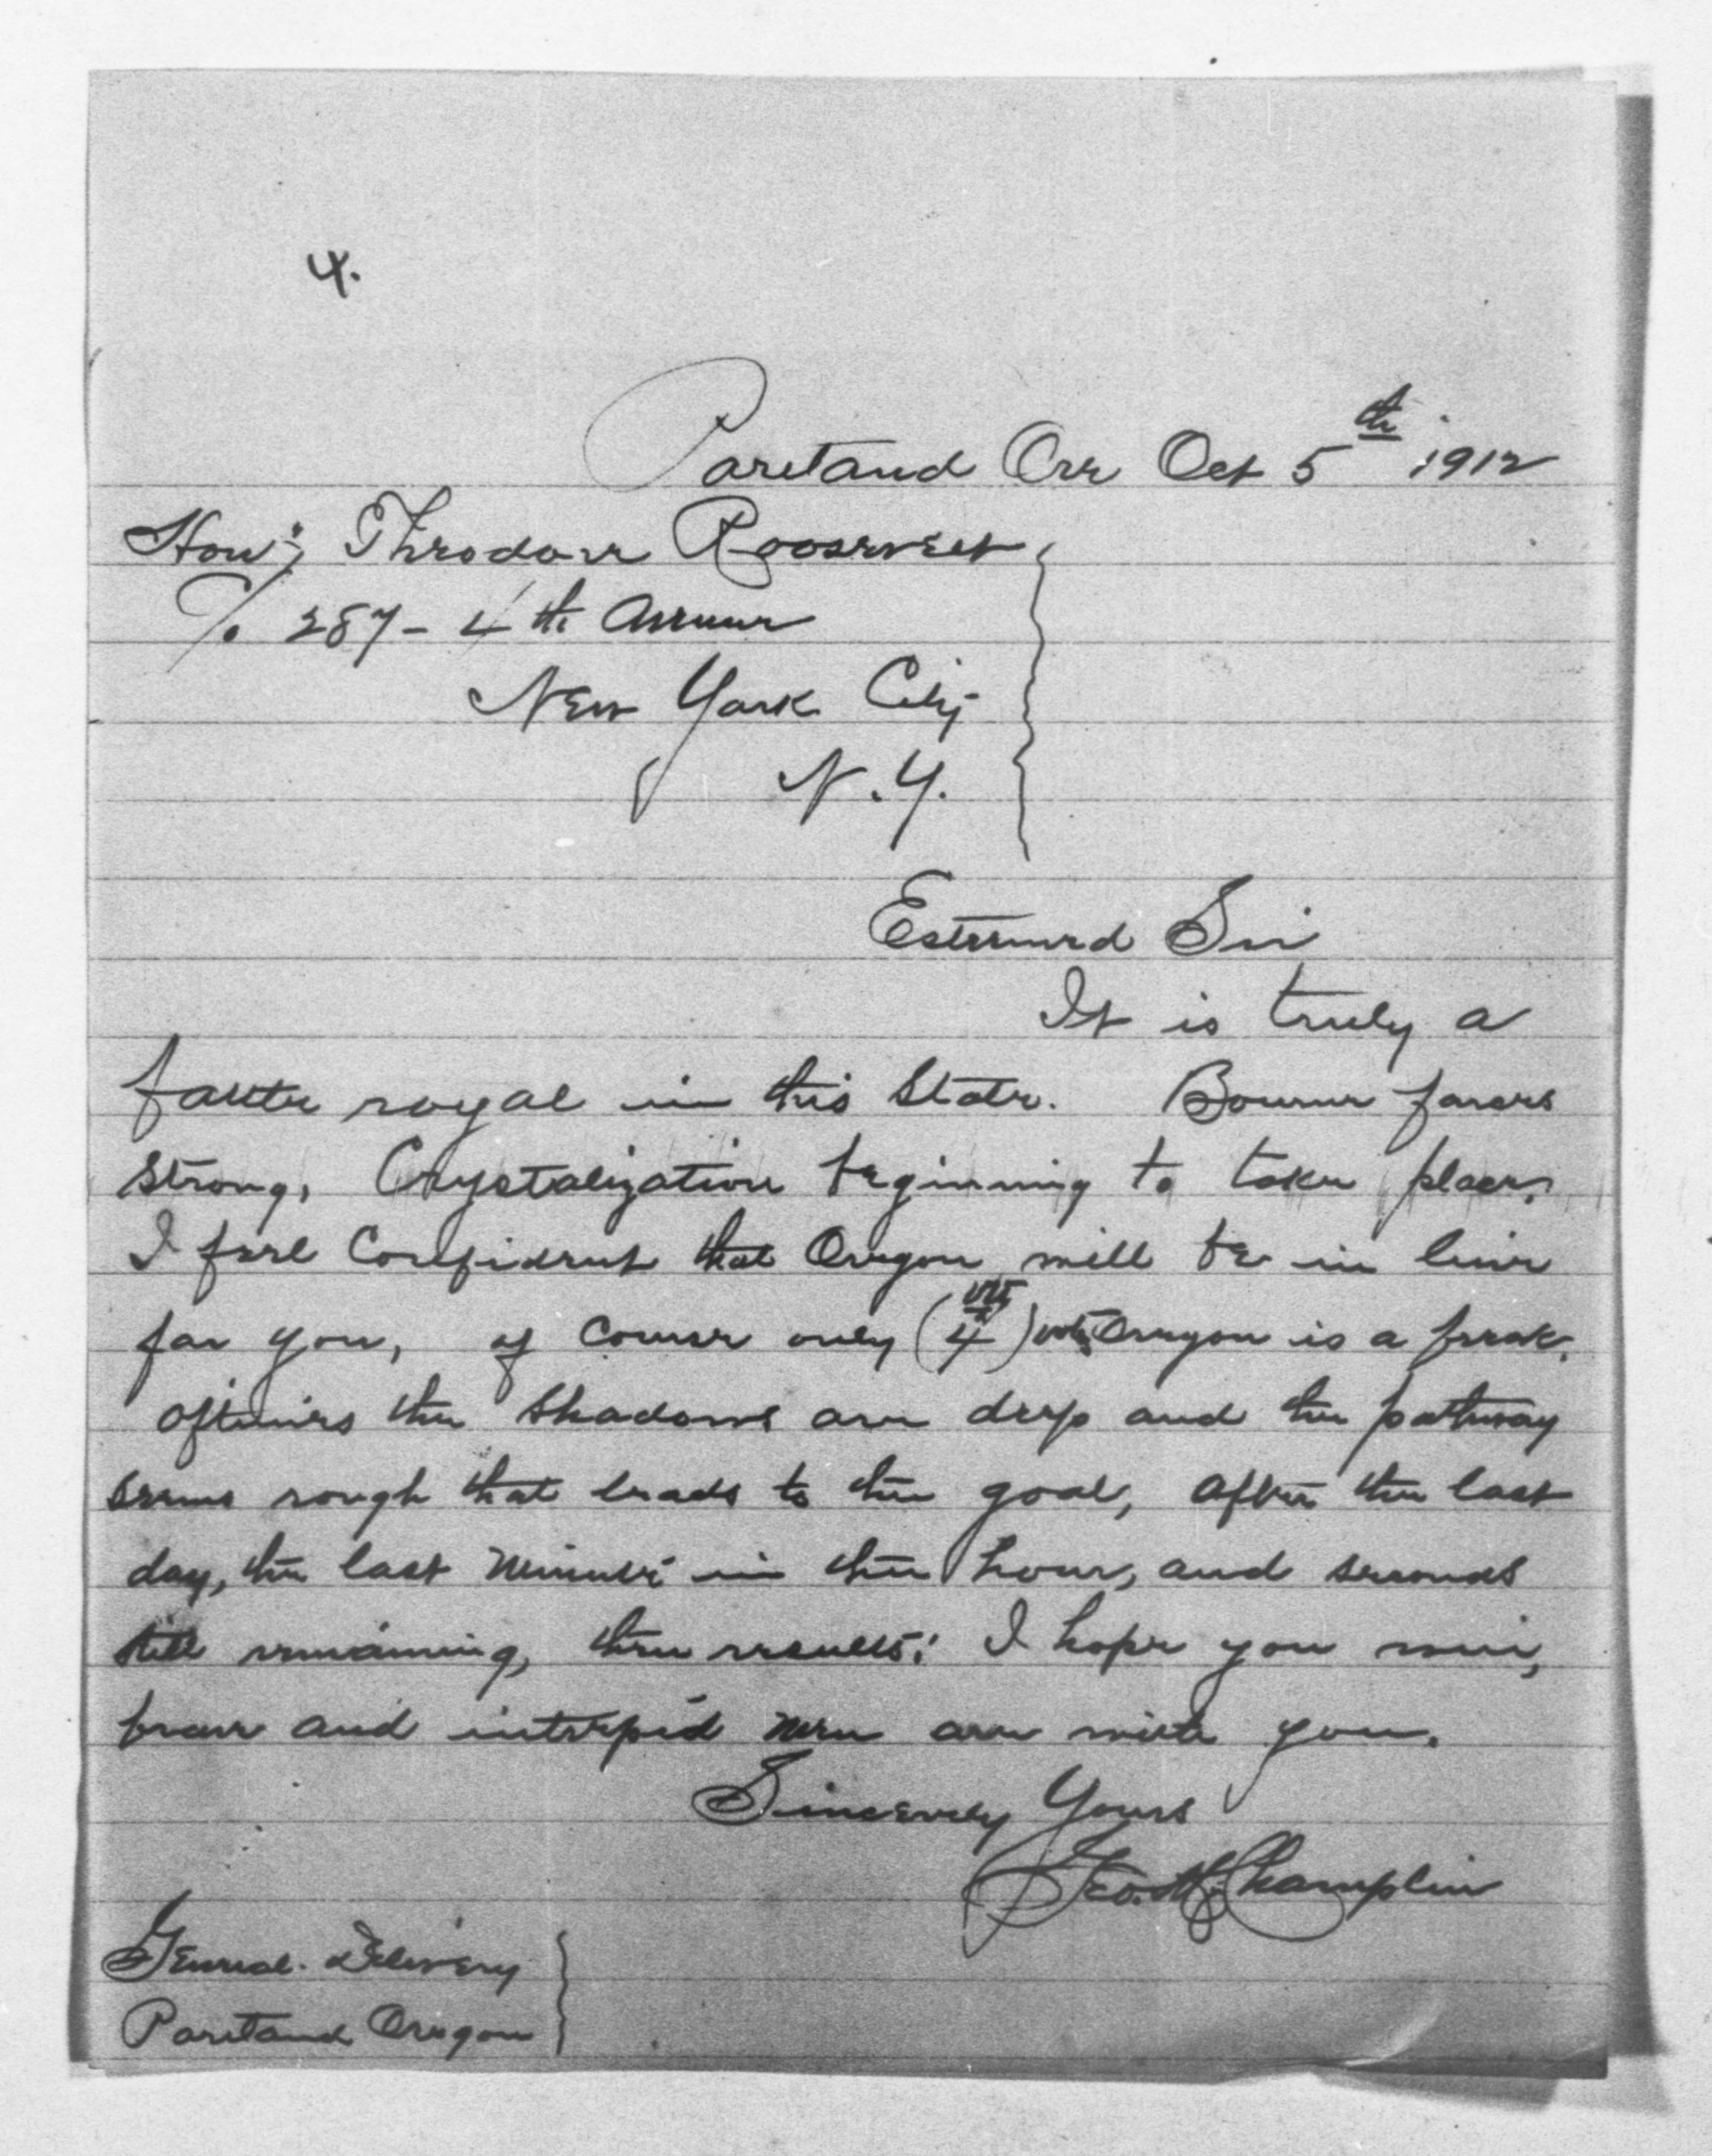 4.
Portland Ore Oct 5th 1912
Hon; Theodore Roosevelt
c/o 287 - 4th Avenue
New York City
N.Y.
Esteemed Sir
It is truly a
battle royal in this State. Bourne favors
strong, Crystalization beginning to take place.
I feel Confident that Oregon will be in line
for you, of Course only (4) Oregon is a freak.
oftimes the Shadows are deep and the pathway
seems rough that leads to the goal, after the last
day, the last minute in the hour, and seconds
still remaining, then results: I hope you win,
brave and intrepid men are with you.
Sincerely Yours
Geo. M. Champlin
General Delivery
Portland Oregon